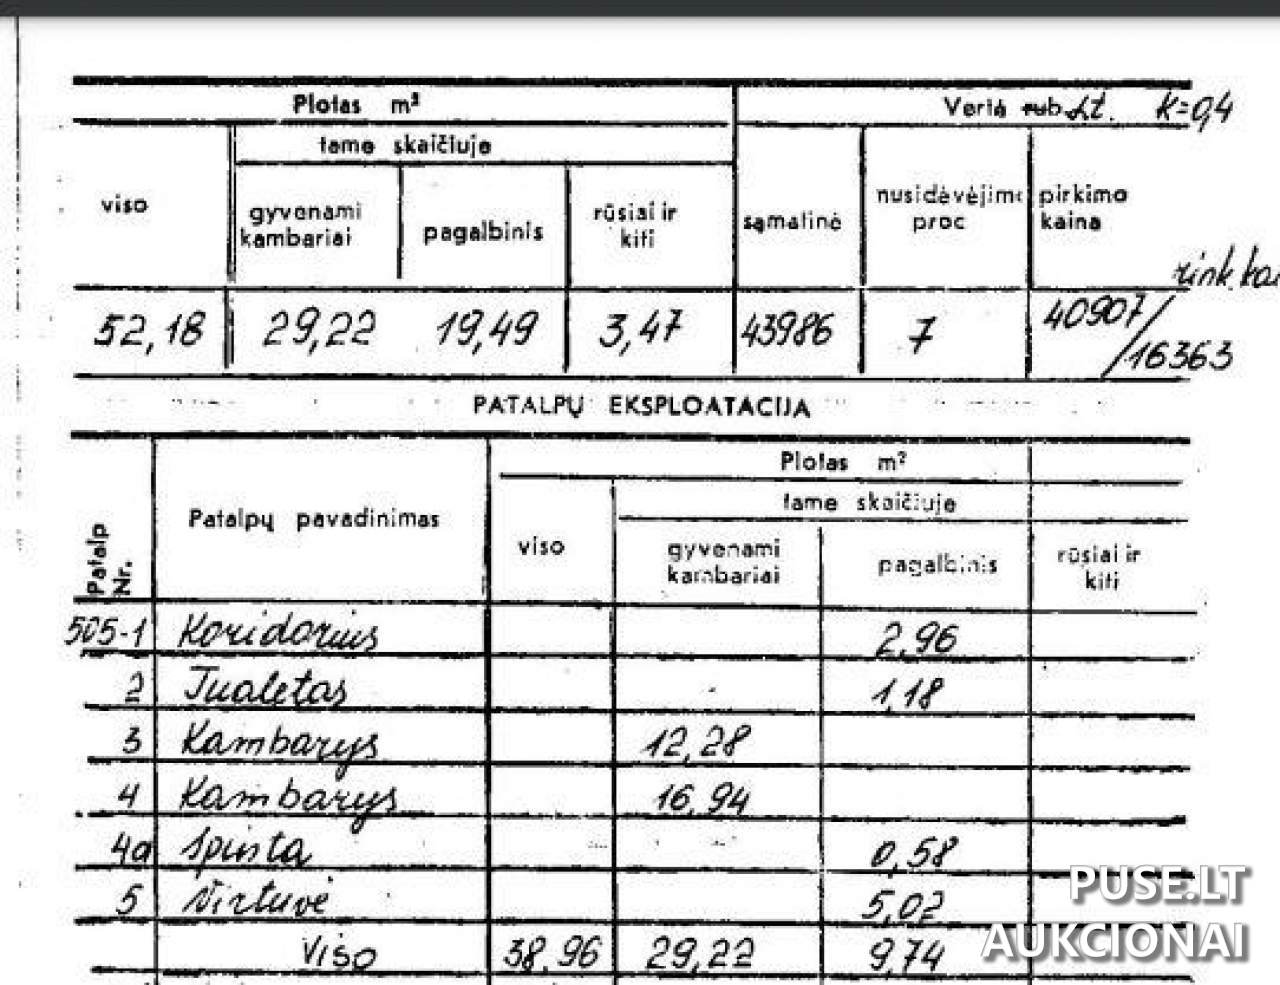 Plotas m²
Vertė rub Lt. K=0,4
viso
tame skaičiuje
gyvenami kambariai
pagalbinis
rūsiai ir kiti
sąmatinė
nusidėvėjimo proc
pirkimo kaina
rink. kai
52,18 29,22 19,49 3,47 43986 7 40907/
/16363
PATALPŲ EKSPLOATACIJA
Patalp Nr.
Patalpų pavadinimas
Plotas m²
viso
tame skaičiuje
gyvenami kambariai
pagalbinis
rūsiai ir kiti
505-1 Koridorius 2,96
2 Tualetas 1,18
3 Kambarys 12,28
4 Kambarys 16,94
4a Spinta 0,58
5 Virtuvė 5,02
Viso 38,96 29,22 9,74
PUSE.LT
AUKCIONAI